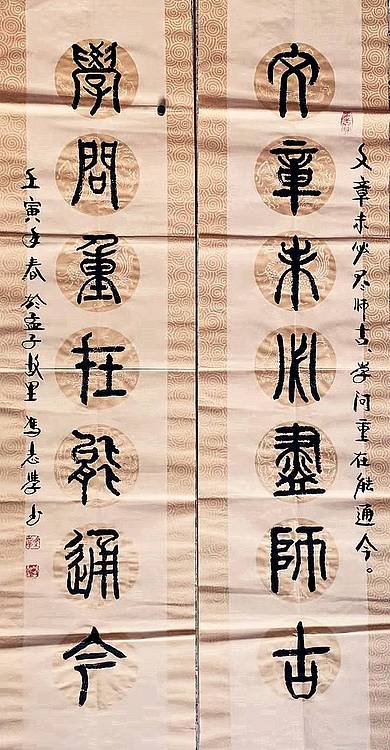 文章未必尽师古、学问重在能通今。
文章未必盡師古
學問重在能通今
壬寅年春於孟子故里冯志学书